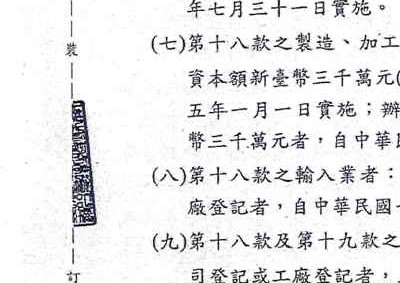 年七月三十一日實施。
(七)第十八款之製造、加工
資本額新臺幣三千萬元(
五年一月一日實施；辦
幣三千萬元者，自中華民
(八)第十八款之輸入業者：
廠登記者，自中華民國
(九)第十八款及第十九款之
司登記或工廠登記者，
裝
訂